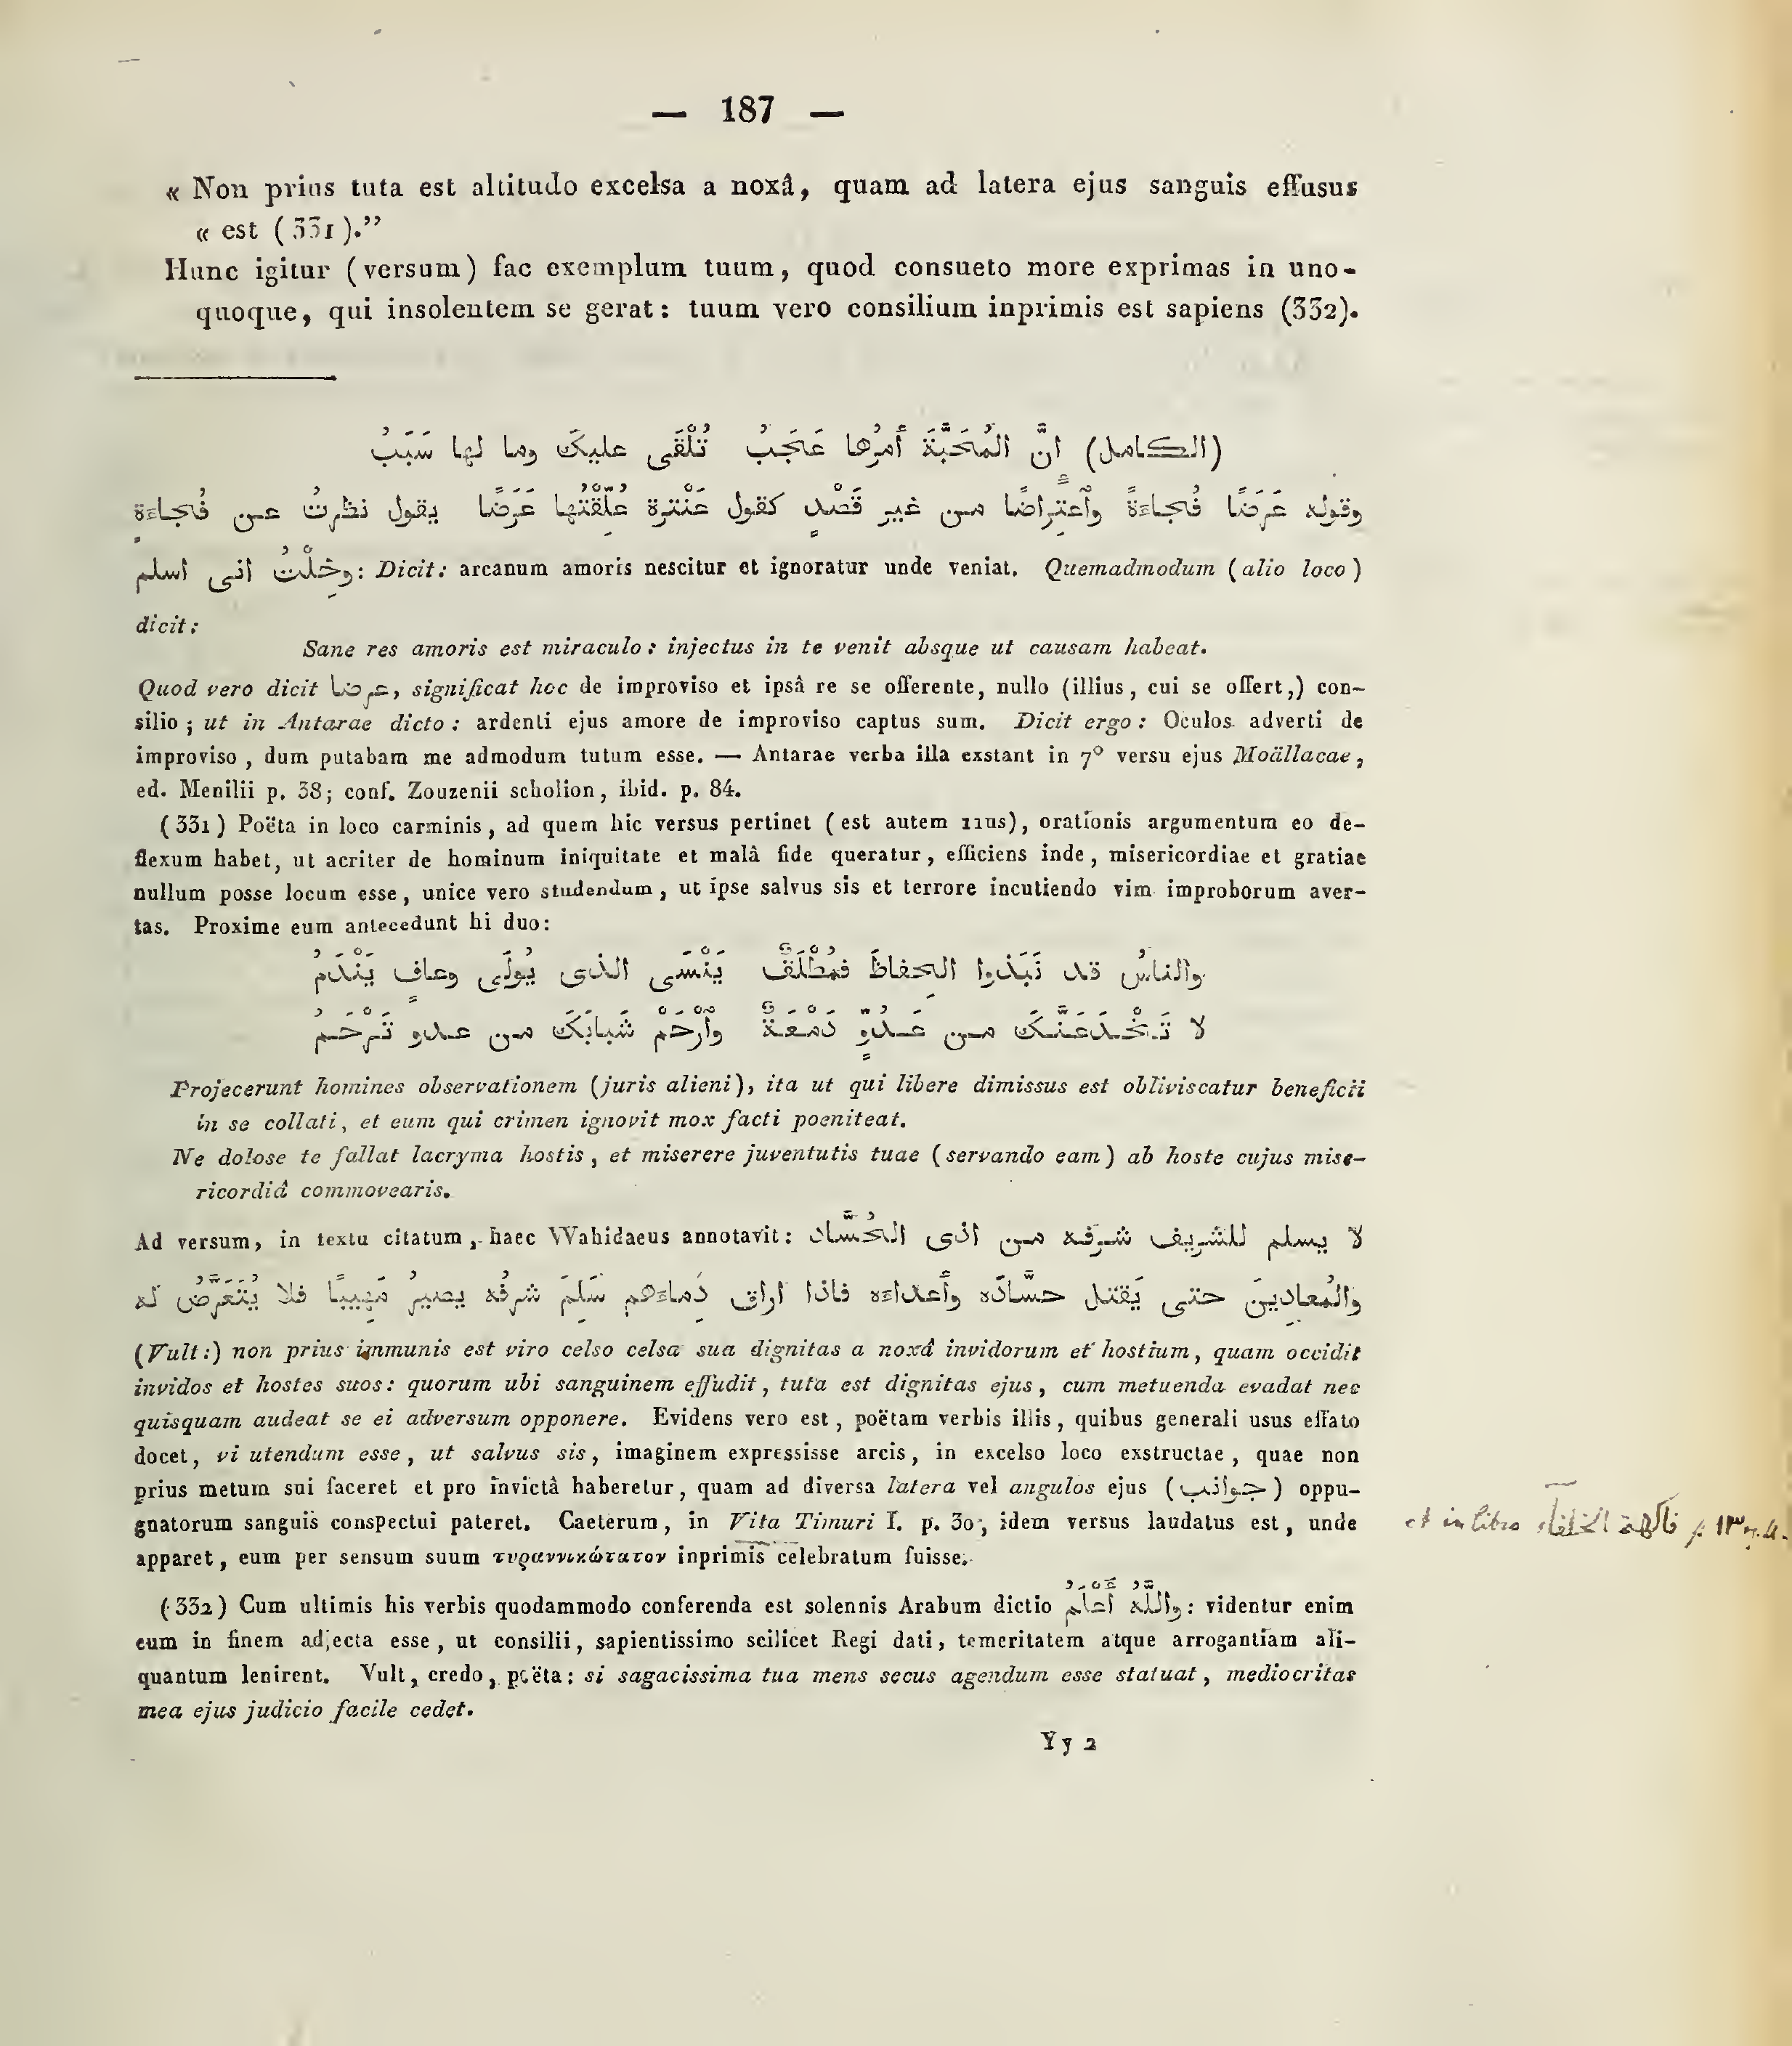 — 187 —
« Non prius tuta est altitudo excelsa a noxâ, quam ad latera ejus sanguis effusus
« est (331).”
Hunc igitur (versum) fac exemplum tuum, quod consueto more exprimas in uno-
quoque, qui insolentem se gerat: tuum vero consilium inprimis est sapiens (332).
(الكامل) انَّ المُحَبَّةَ أَمرُها عَجَبُ تُلْقَى عليكَ وما لها سَبَبُ
وقوله عَرَضًا فُجاءَةً وٱعتِراضًا من غير قَصْدٍ كقول عَنْترة عُلِّقْتُها عَرَضًا يقول نظرتُ عن فُجاءَةٍ
وخِلْتُ انى اسلم: Dicit: arcanum amoris nescitur et ignoratur unde veniat. Quemadmodum (alio loco)
dicit:
Sane res amoris est miraculo: injectus in te venit absque ut causam habeat.
Quod vero dicit عرضا, significat hoc de improviso et ipsâ re se offerente, nullo (illius, cui se offert,) con-
silio; ut in Antarae dicto: ardenti ejus amore de improviso captus sum. Dicit ergo: Oculos adverti de
improviso, dum putabam me admodum tutum esse. — Antarae verba illa exstant in 7⁰ versu ejus Moällacae,
ed. Menilii p. 38; conf. Zouzenii scholion, ibid. p. 84.
(331) Poëta in loco carminis, ad quem hic versus pertinet (est autem 11us), orationis argumentum eo de-
flexum habet, ut acriter de hominum iniquitate et malâ fide queratur, efficiens inde, misericordiae et gratiae
nullum posse locum esse, unice vero studendum, ut ipse salvus sis et terrore incutiendo vim improborum aver-
tas. Proxime eum antecedunt hi duo:
والناسُ قد نَبَذوا الحِفاظَ فمُطْلَقٌ يَنْسَى الذى يُولَى وعافٍ يَنْدَمُ
لا تَخْدَعَنَّكَ من عَدُوٍّ دَمْعَةٌ وٱرْحَمْ شَبابَكَ من عدو تَرْحَمُ
Projecerunt homines observationem (juris alieni), ita ut qui libere dimissus est obliviscatur beneficii
in se collati, et eum qui crimen ignovit mox facti poeniteat.
Ne dolose te fallat lacryma hostis, et miserere juventutis tuae (servando eam) ab hoste cujus mise-
ricordiâ commovearis.
Ad versum, in textu citatum, haec Wahidaeus annotavit: لا يسلم للشريف شرفه من اذى الحُسَّاد
والمُعادِينَ حتى يَقتل حسَّادَه وأَعداءه فاذا اراق دِماءهم سَلِمَ شرفُه يصيرُ مَهِيبًا فلا يُتَعَرَّضُ له
(Vult:) non prius immunis est viro celso celsa sua dignitas a noxâ invidorum et hostium, quam occidit
invidos et hostes suos: quorum ubi sanguinem effudit, tuta est dignitas ejus, cum metuenda evadat nec
quisquam audeat se ei adversum opponere. Evidens vero est, poëtam verbis illis, quibus generali usus effato
docet, vi utendum esse, ut salvus sis, imaginem expressisse arcis, in excelso loco exstructae, quae non
prius metum sui faceret et pro invictâ haberetur, quam ad diversa latera vel angulos ejus (جوانب) oppu-
gnatorum sanguis conspectui pateret. Caeterum, in Vita Timuri I. p. 30, idem versus laudatus est, unde
et in libro فاكهة الخلفاء p. ١٣
apparet, eum per sensum suum τυραννικώτατον inprimis celebratum fuisse.
(332) Cum ultimis his verbis quodammodo conferenda est solennis Arabum dictio وَٱللَّهُ أَعْلَمُ: videntur enim
eum in finem adjecta esse, ut consilii, sapientissimo scilicet Regi dati, temeritatem atque arrogantiam ali-
quantum lenirent. Vult, credo, poëta: si sagacissima tua mens secus agendum esse statuat, mediocritas
mea ejus judicio facile cedet.
Yy 2